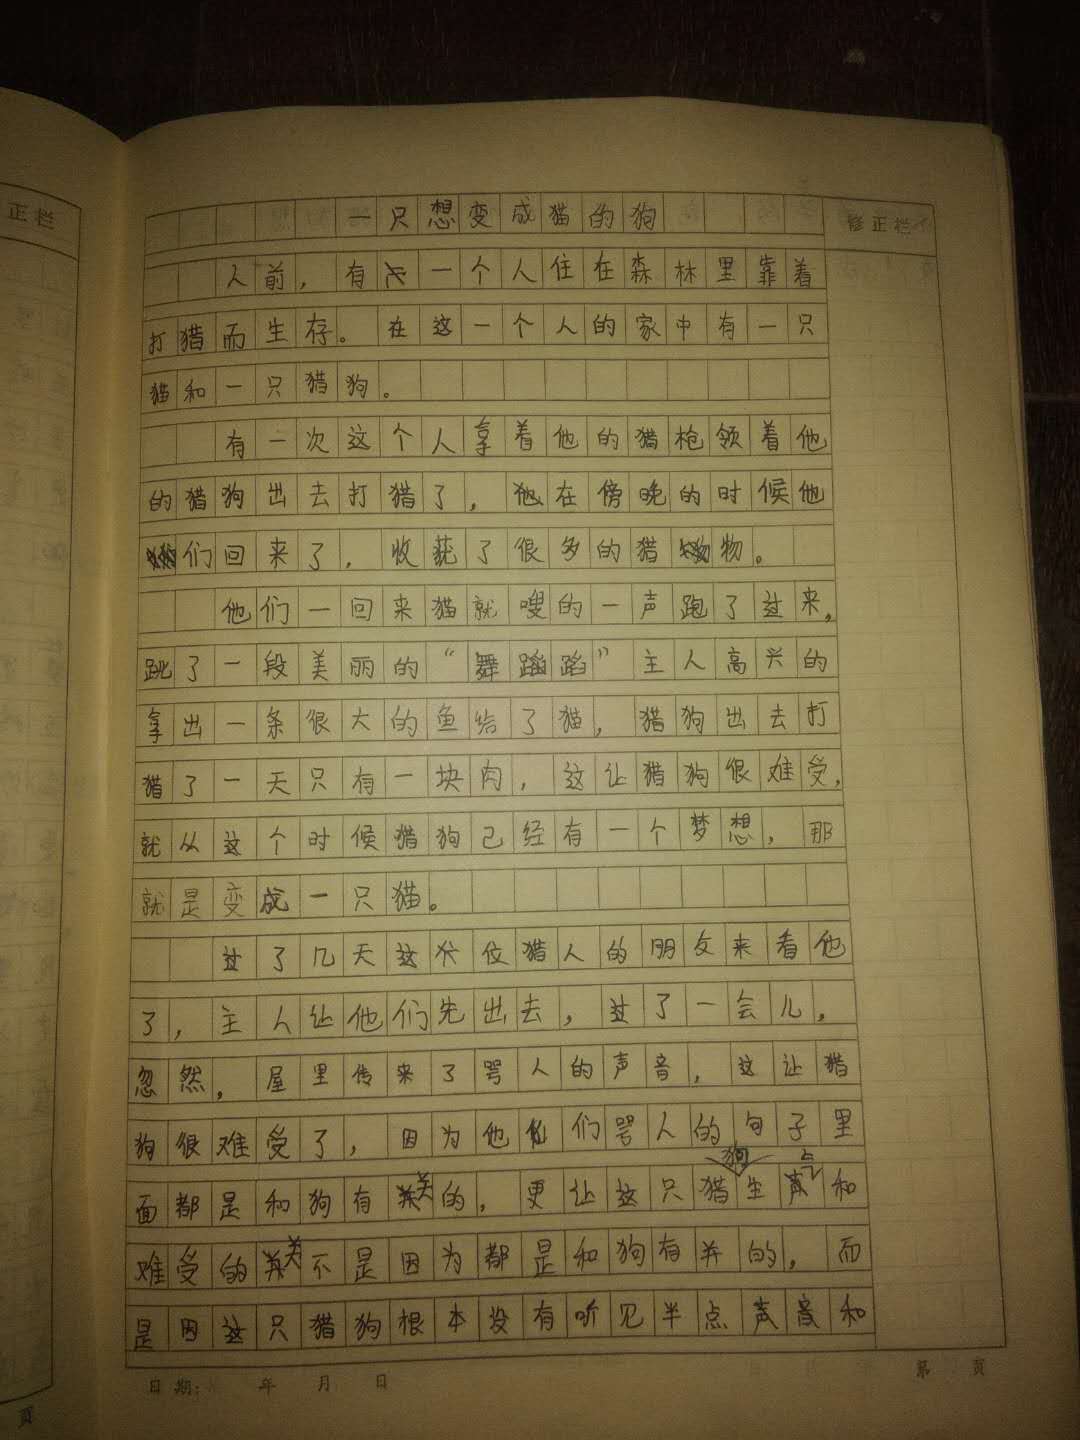 正栏
一只想变成猫的狗
修正栏
人前，有一个人住在森林里靠着
打猎而生存。在这一个人的家中有一只
猫和一只猎狗。
有一次这个人拿着他的猎枪领着他
的猎狗出去打猎了，他在傍晚的时候他
们回来了，收获了很多的猎物。
他们一回来猫就嗖的一声跑了过来，
跳了一段美丽的“舞蹈”主人高兴的
拿出一条很大的鱼给了猫，猎狗出去打
猎了一天只有一块肉，这让猎狗很难受，
就从这个时候猎狗已经有一个梦想，那
就是变成一只猫。
过了几天这位猎人的朋友来看他
了，主人让他们先出去，过了一会儿，
忽然，屋里传来了骂人的声音，这让猎
狗很难受了，因为他们骂人的句子里
面都是和狗有关的，更让这只猎狗生气和
难受的关不是因为都是和狗有关的，而
是因这只猎狗根本没有听见半点声音和
日期： 年 月 日
第 页
页